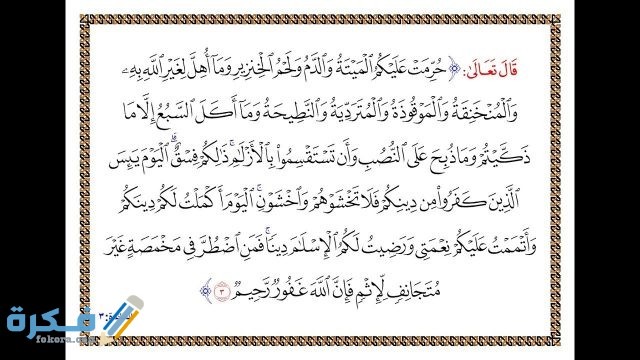 قَالَ تَعَالَىٰ: ﴿ حُرِّمَتْ عَلَيْكُمُ ٱلْمَيْتَةُ وَٱلدَّمُ وَلَحْمُ ٱلْخِنزِيرِ وَمَآ أُهِلَّ لِغَيْرِ ٱللَّهِ بِهِۦ
وَٱلْمُنْخَنِقَةُ وَٱلْمَوْقُوذَةُ وَٱلْمُتَرَدِّيَةُ وَٱلنَّطِيحَةُ وَمَآ أَكَلَ ٱلسَّبُعُ إِلَّا مَا
ذَكَّيْتُمْ وَمَا ذُبِحَ عَلَى ٱلنُّصُبِ وَأَن تَسْتَقْسِمُوا۟ بِٱلْأَزْلَٰمِ ۚ ذَٰلِكُمْ فِسْقٌ ۗ ٱلْيَوْمَ يَئِسَ
ٱلَّذِينَ كَفَرُوا۟ مِن دِينِكُمْ فَلَا تَخْشَوْهُمْ وَٱخْشَوْنِ ۚ ٱلْيَوْمَ أَكْمَلْتُ لَكُمْ دِينَكُمْ
وَأَتْمَمْتُ عَلَيْكُمْ نِعْمَتِى وَرَضِيتُ لَكُمُ ٱلْإِسْلَٰمَ دِينًا ۚ فَمَنِ ٱضْطُرَّ فِى مَخْمَصَةٍ غَيْرَ
مُتَجَانِفٍ لِّإِثْمٍ ۙ فَإِنَّ ٱللَّهَ غَفُورٌ رَّحِيمٌ ٣ ﴾
فكرة
fokera.com